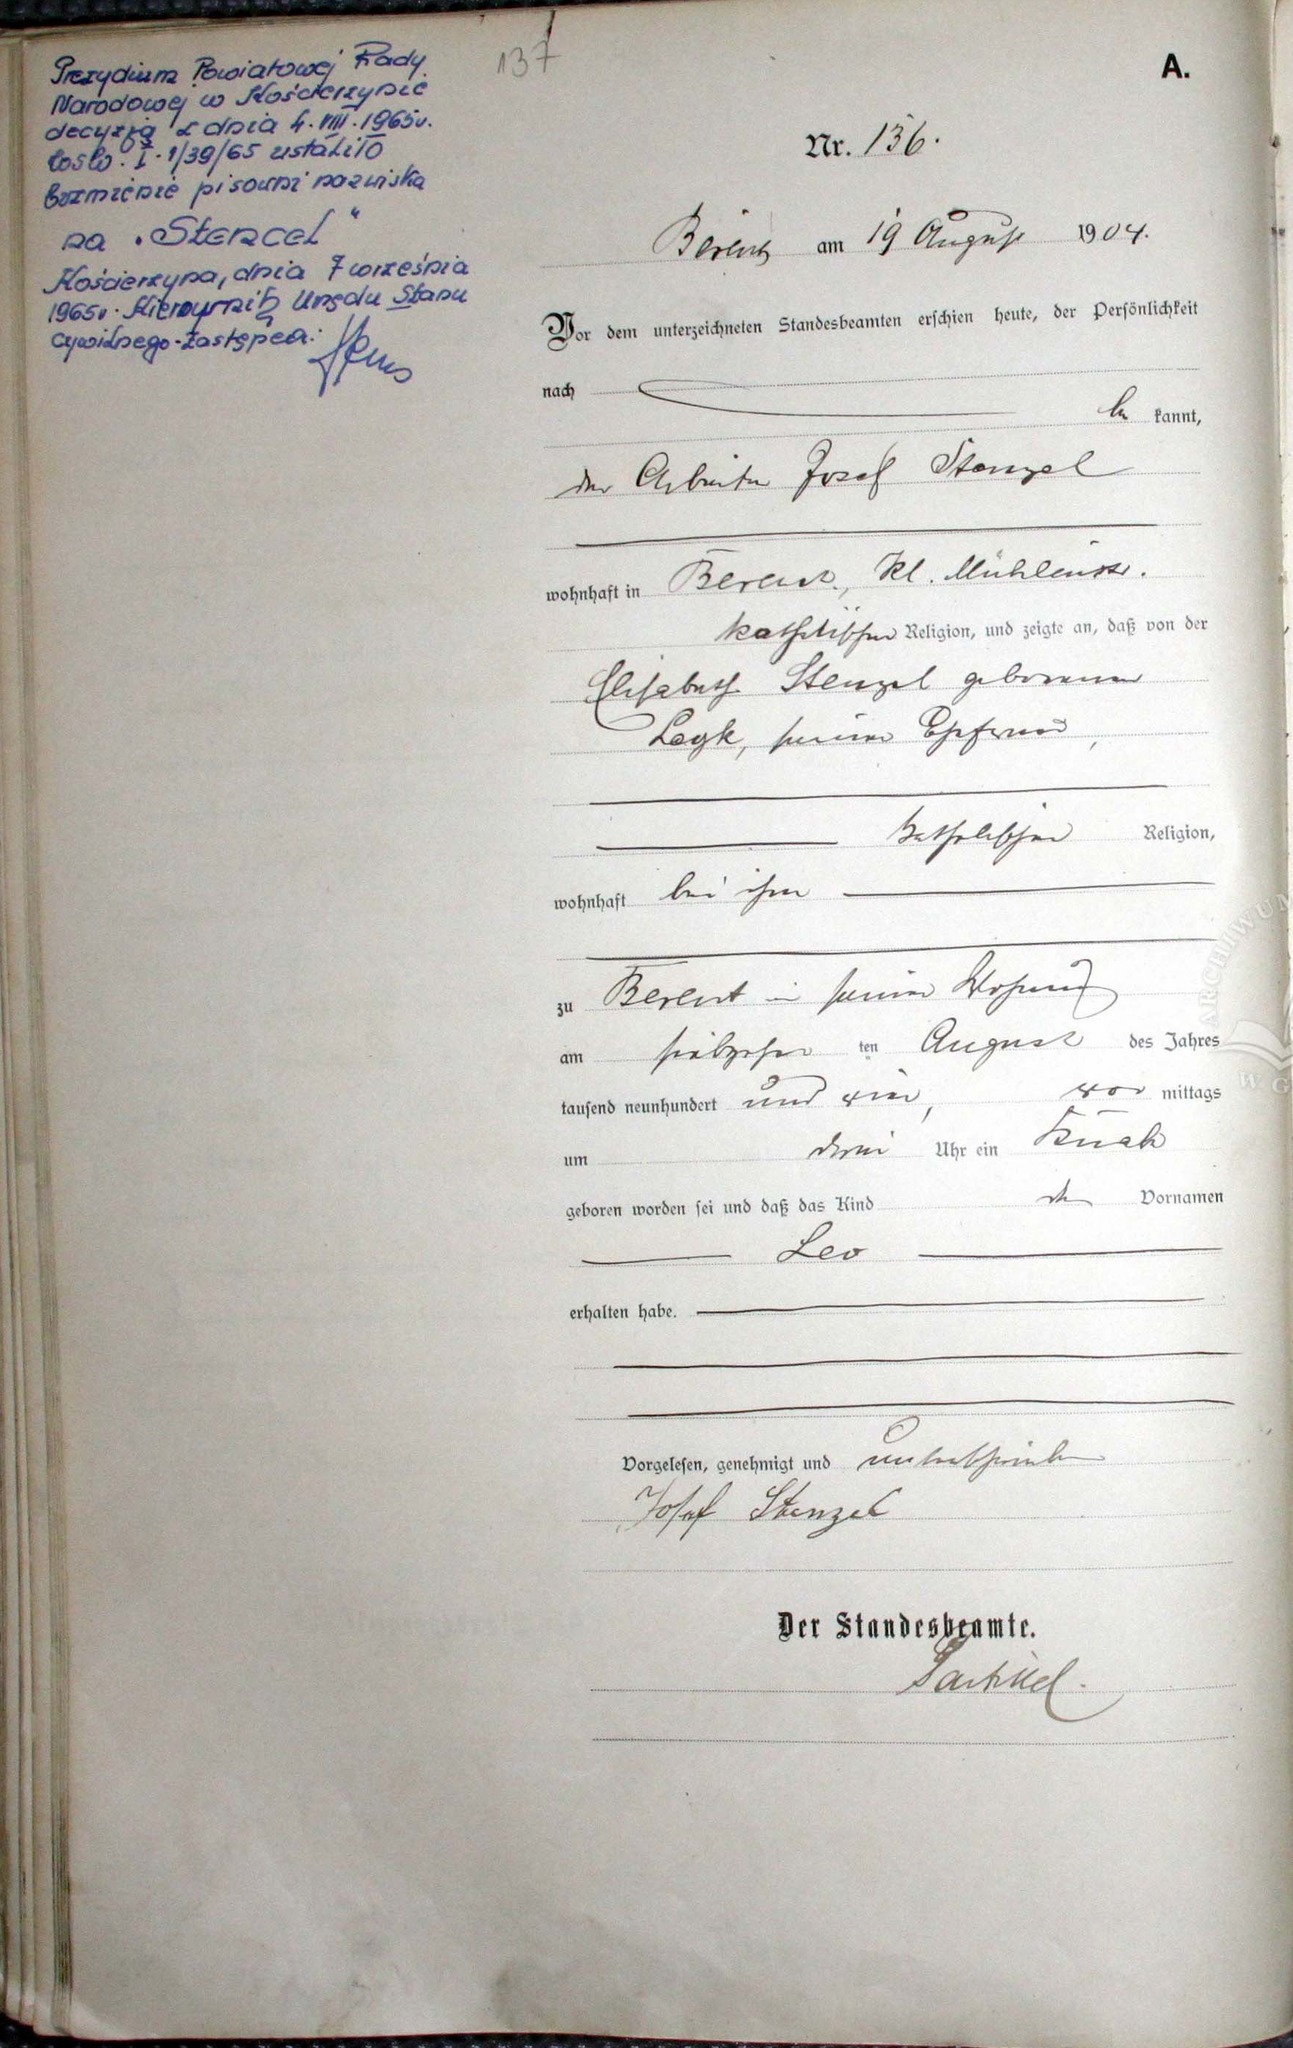 137
A.
Prezydium Powiatowej Rady
Narodowej w Kościerzynie
decyzją z dnia 4.VIII.1965r.
I. 1/39/65 ustaliło
brzmienie pisowni nazwiska
na „Stencel"
Kościerzyna, dnia 7 września
1965r. Kierownik Urzędu Stanu
cywilnego-Zastępca:
Nr. 136.
Berent am 19 August 1904.
Vor dem unterzeichneten Standesbeamten erschien heute, der Persönlichkeit
nach
be kannt,
der Arbeiter Josef Stenzel
wohnhaft in Berent, Kl. Mühlenstr.
katholischer Religion, und zeigte an, daß von der
Elisabeth Stenzel geborenen
Legk, seiner Ehefrau,
katholischer Religion,
wohnhaft bei ihm
zu Berent in seiner Wohnung
am siebzehn ten August des Jahres
tausend neunhundert und vier, vor mittags
um drei Uhr ein Knabe
geboren worden sei und daß das Kind den Vornamen
Leo
erhalten habe.
Vorgelesen, genehmigt und unterschrieben
Josef Stenzel
Der Standesbeamte.
ARCHIWUM
W G